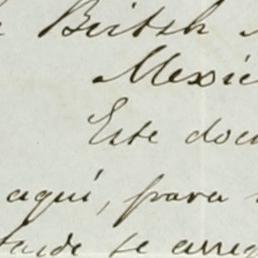 British
Mexic
Este doc
aquí, para
tarde se arreg